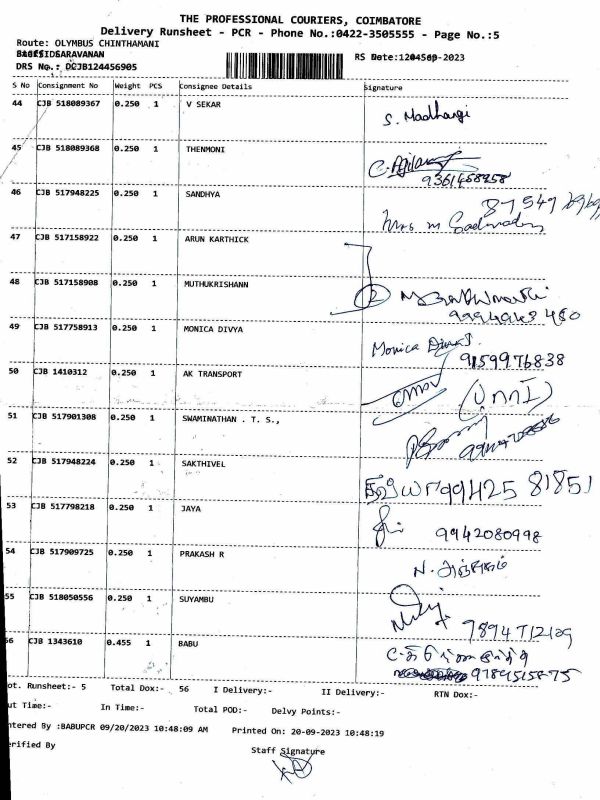 THE PROFESSIONAL COURIERS, COIMBATORE
Delivery Runsheet - PCR - Phone No.:0422-3505555 - Page No.:5
Route: OLYMBUS CHINTHAMANI
SARAVANAN
RS Date: 20-Sep-2023
DRS No.: DCJB124456905
S No Consignment No Weight PCS Consignee Details Signature
44 CJB 518089367 0.250 1 V SEKAR S. Madhangi
45 CJB 518089368 0.250 1 THENMONI
9361458958
46 CJB 517948225 0.250 1 SANDHYA
Mrs m
47 CJB 517158922 0.250 1 ARUN KARTHICK
48 CJB 517158908 0.250 1 MUTHUKRISHANN 2
49 CJB 517758913 0.250 1 MONICA DIVYA Monica
9159976838
50 CJB 1410312 0.250 1 AK TRANSPORT
51 CJB 517901308 0.250 1 SWAMINATHAN . T. S.,
52 CJB 517948224 0.250 1 SAKTHIVEL 99425 81851
53 CJB 517798218 0.250 1 JAYA
9942080998
54 CJB 517909725 0.250 1 PRAKASH R
55 CJB 518050556 0.250 1 SUYAMBU
56 CJB 1343610 0.455 1 BABU
9789515875
ot. Runsheet:- 5 Total Dox:- 56 I Delivery:- II Delivery:- RTN Dox:-
ut Time:- In Time:- Total POD:- Delvy Points:-
ntered By :BABUPCR 09/20/2023 10:48:09 AM Printed On: 20-09-2023 10:48:19
erified By Staff Signature